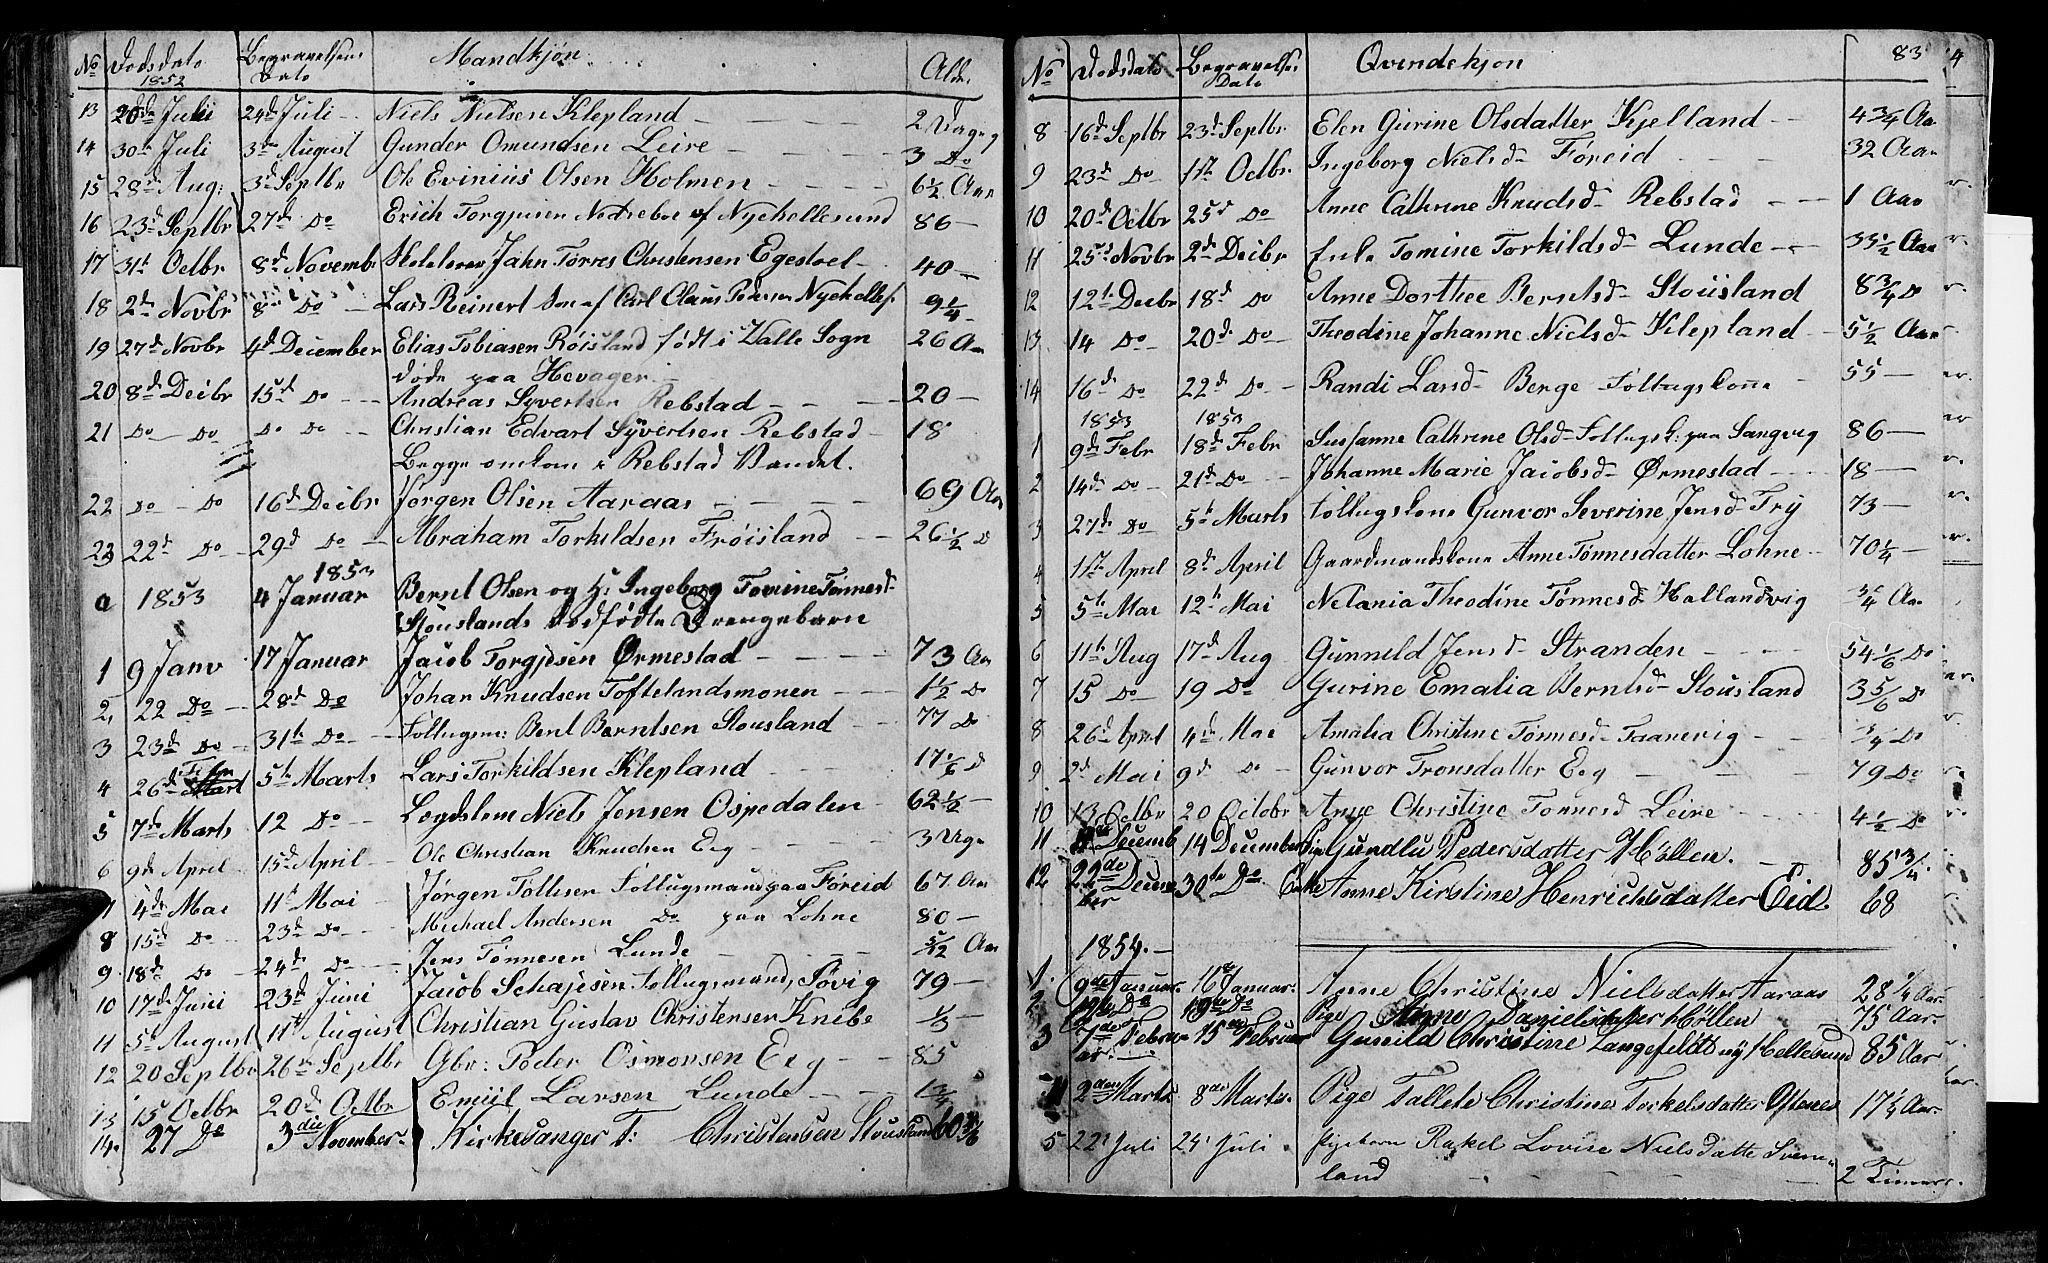 No Dødsdato 1852 Begravelses Dato Mandkjøn Alder
13 20de Juli 24d Juli Niels Nielsen Klepland 2 Dage g
14 30te Juli 3die August Gunder Omundsen Leire 3 Do
15 28d Aug: 3d Septbr Ole Evinius Olsen Holmen 6 1/2 Aar
16 23d Septbr 27d Do Erich Torgjusen Nedreboe af Nyehellesund 86 —
17 31te Octbr 8d Novemb Jahn Torres Christensen Egestoel 40 —
18 2d Novbr 8d Do Lars Reinert Søn af Carl Claus Pedersen Nyehelles 9 1/4
19 27d Novbr 4d December Elias Tobiasen Røisland født i Halle Sogn 26 Aar
døde paa Hevager
20 8d Decbr 15d Do Andreas Syvertsen Rebstad 20 —
21 Do Do Do Do Christian Edvart Syvertsen Rebstad 18
Begge omkom i Rebstad Vandet.
22 Do Do 16d Decbr Jørgen Olsen Aaraas 69 Aar
23 22d Do 29d Do Abraham Torkildsen Frøisland 26 1/2 D
a 1853 1853 4 Januar Bernt Olsen og H: Ingeborg Tomine Tønnesd
Stouslands dødfødte Drengebarn
1 9 Janv 17 Januar Jacob Torgjesen Ørmestad 73 Aar
2 22 Do 28d Do Johan Knudsen Toftelandsmonen 1 1/2 Do
3 23d Do 31te Do Føllugsm: Bent Berntsen Stousland 77 Do
4 26d Febr 5te Marts Lars Torkildsen Klepland 17 1/6 D
5 7d Marts 12 Do Lægdslem Niels Jensen Ospedalen 62 1/2 —
6 9d April 15d April Ole Christian Knudsen Eeg 3 Uge
7 4de Mai 11te Mai Jørgen Tollisen Føllugsmand paa Føreid 67 Aar
8 15d Do 23d Do Michael Andersen Do paa Lohne 80 —
9 18d Do 24d Do Jens Tønnesen Lunde 5/12 Aar
10 17d Juni 23d Juni Jacob Schajesen Føllugsmand, Søvig 79 —
11 5te August 11te August Christian Gustav Christensen Knibe 1/3 —
12 20 Septbr 26te Septbr Gbr: Peder Osmonsen Eeg 85
13 15 Octbr 20d Octbr Emiil Larsen Lunde 1 3/4
14. 27 Do 3die November Kirkesanger T: Christensen Stousland 60 3/6
No Dødsdato Begravelses Dato Qvindekjøn 83
8 16d Septbr 23d Septbr Elen Gurine Olsdatter Kjelland 4 3/4 Aar
9 23d Do 1te Octbr Ingeborg Nielsd Føreid 32 Aar
10 20d Octbr 25d Do Anne Cathrine Knudsd Rebstad 1 Aar
11 25d Novbr 2d Decbr Enke Tomine Torkildsd Lunde 33 1/2 Aar
12 12te Decbr 18d Do Anne Dorthee Berntsd Stousland 8 3/4 D
13 14 Do 20d Do Theodine Johanne Nielsd Klepland 5 1/2 Aar
14 16d Do 22d Do Randi Larsd Berge Føllugskone 55 —
1853 1853
1 9d Febr 18d Febr Susanne Cathrine Olsd Føllugsk: paa Sangvig 86 —
2 14d Do 21d Do Johanne Marie Jacobsd Ørmestad 18 —
3 27d Do 5te Marts Føllugskone Gunvor Severine Jensd Try 73 —
4 1te April 8d April Gaardmandskone Anne Tønnesdatter Lohne 70 1/4 —
5 5te Mai 12te Mai Nelania Theodine Tønnesd Hallandvig 3/4 Aar
6 11te Aug 17d Aug Gunneld Jensd Stranden 54 1/6 Do
7 15 Do 19 Do Gurine Emalia Berntsd Stousland 3 5/6 D
8 26d April 4de Mai Amalia Christine Tønnesd Taanevig 3/4 Do
9 2d Mai 9d Do Gunvor Tronsdatter Eeg 79 Do
10 13 Octbr 20 Octobr Anne Christine Tønnesd Leire 4 1/2 Do
11 Decemb 14 December Gundlu Pedersdatter Höllen. 85 3/4
12 22de December 30te Do Enke Anne Kirstine Henrichsdatter Eid. 68
1854.
1. 9de Januar 16de Januar. Anne Christine Nielsdatter Aaraas 28 1/4 Aar
2. Do 19de Do Pige Anne Danielsdatter Höllen 75 Aar.
3 7de Februar 15de Februar Guneild Christine Langefeldt ny Hellesund 85 Aar
4 2den Marts 8de Marts. Pige Tallete Christine Torkelsdatter Oftenes 17 1/4 Aar.
5 22' Juli 24' Juli Pigebarn Rakel Lovise Nielsdatte Svine-
land 2 Timer.